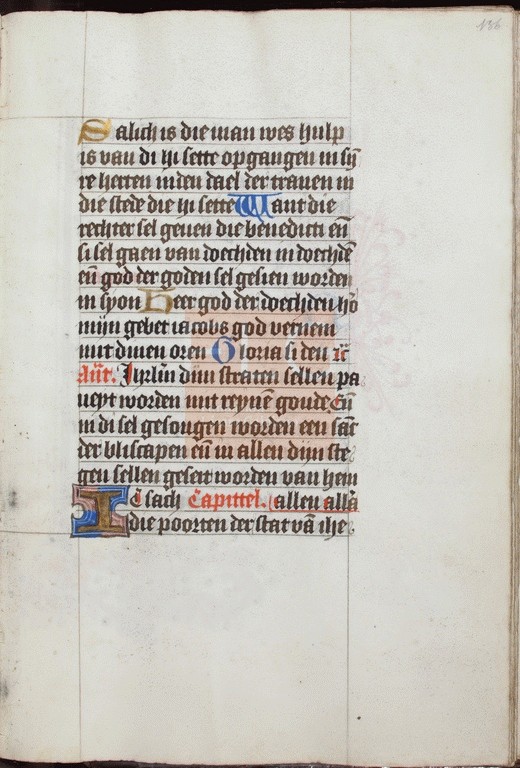 136
Salich is die man wes hulp
is van di hi sette opgangen in sỹ
re herten inden dael der tranen in
die stede die hi sette Want die
rechter sel geuen die benedicti eñ
si sel gaen van doechden in doechdē
eñ god der goden sel gesien worden
in syon Heer god der doechden hō
mijn gebet iacobs god verneem
mit dinen oren Gloria si den
Añt. Jhrlm̄ dijn straten sellen pa
ueyt worden mit reynē goude Eñ
in di sel gesongen worden een sāc
der bliscapen eñ in allen dijn ste
gen sellen geseit worden van hem
IC sach Capittel. (allen all'a
die poorten der stat vā ihe